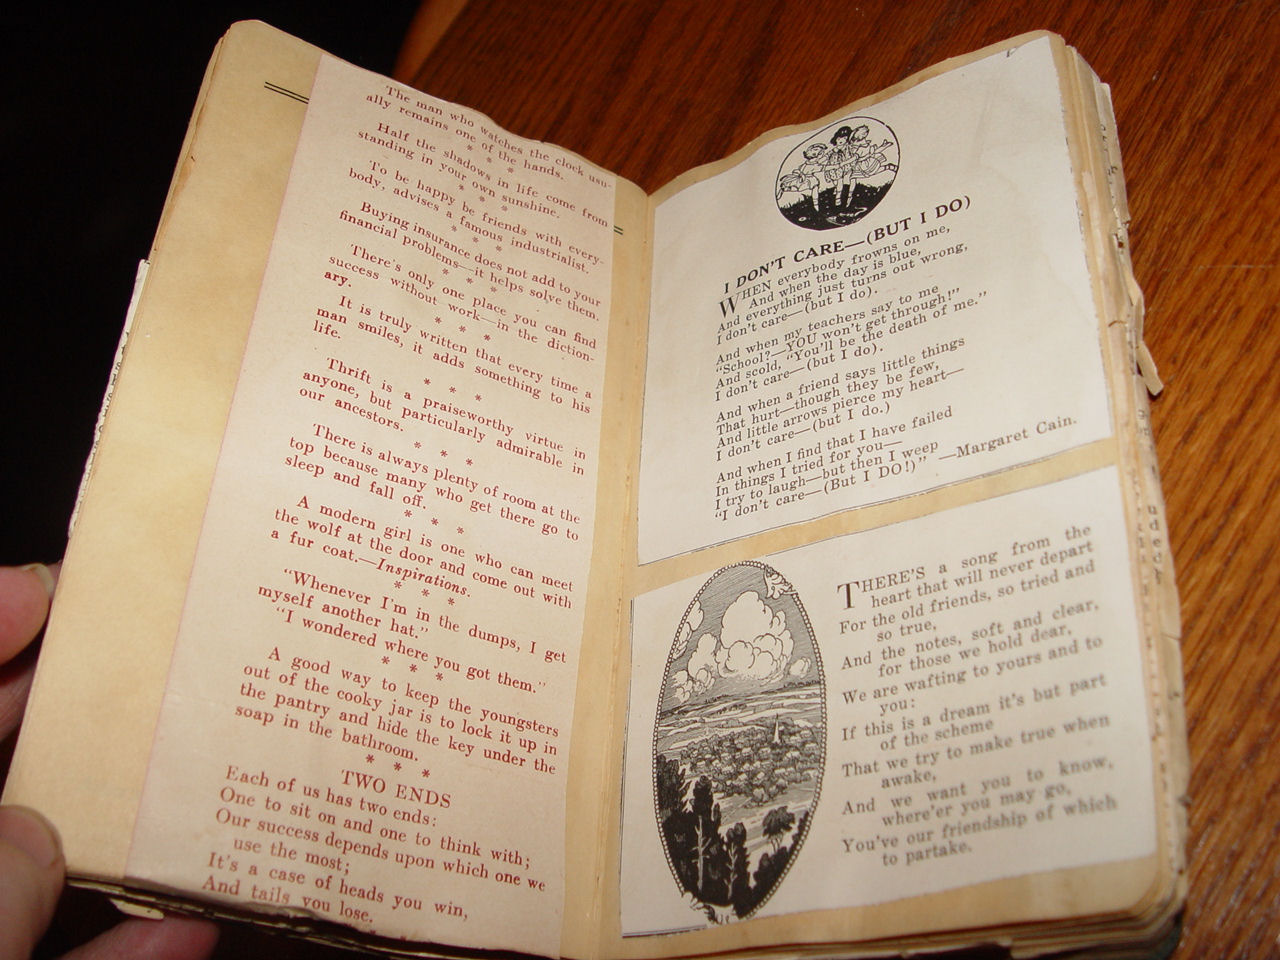 The man who watches the clock usu-
ally remains one of the hands.
* * *
Half the shadows in life come from
standing in your own sunshine.
* * *
To be happy be friends with every-
body, advises a famous industrialist.
* * *
Buying insurance does not add to your
financial problems—it helps solve them.
* * *
There's only one place you can find
success without work—in the diction-
ary.
* * *
It is truly written that every time a
man smiles, it adds something to his
life.
* * *
Thrift is a praiseworthy virtue in
anyone, but particularly admirable in
our ancestors.
* * *
There is always plenty of room at the
top because many who get there go to
sleep and fall off.
* * *
A modern girl is one who can meet
the wolf at the door and come out with
a fur coat.—Inspirations.
* * *
"Whenever I'm in the dumps, I get
myself another hat."
"I wondered where you got them."
* * *
A good way to keep the youngsters
out of the cooky jar is to lock it up in
the pantry and hide the key under the
soap in the bathroom.
* * *
TWO ENDS
Each of us has two ends:
One to sit on and one to think with;
Our success depends upon which one we
use the most;
It's a case of heads you win,
And tails you lose.
I DON'T CARE—(BUT I DO)
WHEN everybody frowns on me,
And when the day is blue,
And everything just turns out wrong,
I don't care—(but I do).
And when my teachers say to me
"School?—YOU won't get through!"
And scold, "You'll be the death of me."
I don't care—(but I do).
And when a friend says little things
That hurt—though they be few,
And little arrows pierce my heart—
I don't care—(but I do.)
And when I find that I have failed
In things I tried for you—
I try to laugh—but then I weep
"I don't care—(But I DO!)" —Margaret Cain.
THERE'S a song from the
heart that will never depart
For the old friends, so tried and
so true,
And the notes, soft and clear,
for those we hold dear,
We are wafting to yours and to
you:
If this is a dream it's but part
of the scheme
That we try to make true when
awake,
And we want you to know,
where'er you may go,
You've our friendship of which
to partake.